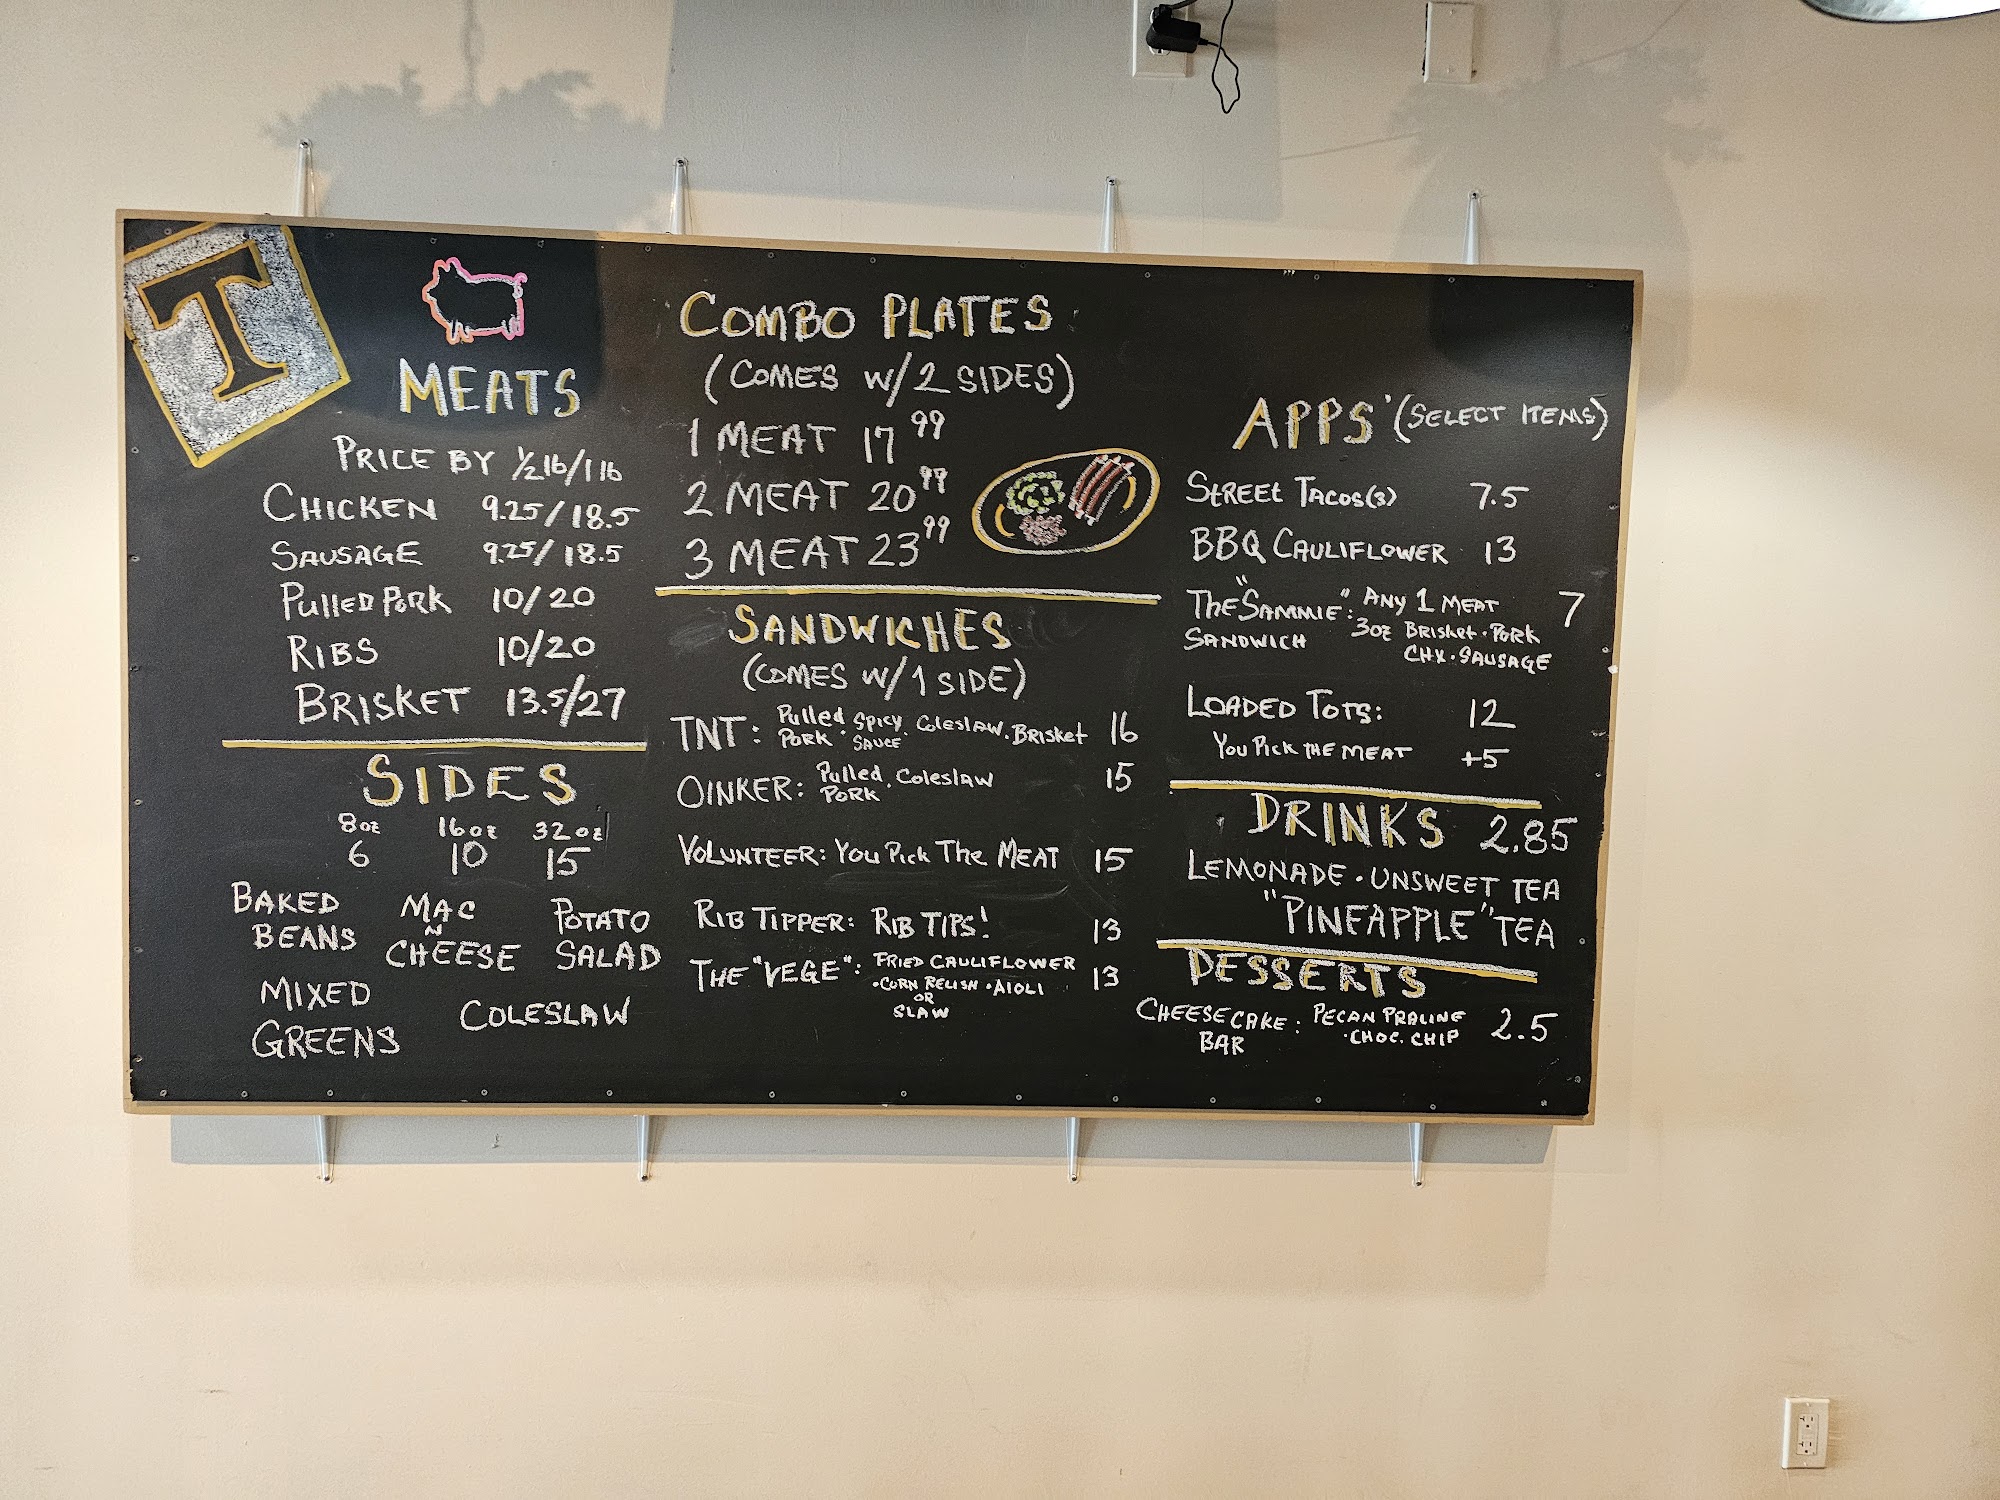 T
MEATS
PRICE BY ½ lb/1 lb
CHICKEN 9.25/18.5
SAUSAGE 9.25/18.5
PULLED PORK 10/20
RIBS 10/20
BRISKET 13.5/27
SIDES
8oz 16oz 32oz
6 10 15
BAKED BEANS
MAC N CHEESE
POTATO SALAD
MIXED GREENS
COLESLAW
COMBO PLATES
(COMES W/2 SIDES)
1 MEAT 17 99
2 MEAT 20 99
3 MEAT 23 99
SANDWICHES
(COMES W/1 SIDE)
TNT: Pulled PORK · Spicy SAUCE · Coleslaw · Brisket 16
OINKER: Pulled PORK · Coleslaw 15
VOLUNTEER: YOU PICK THE MEAT 15
RIB TIPPER: RIB TIPS! 13
THE "VEGE": FRIED CAULIFLOWER 13
· CORN RELISH · AIOLI
OR
SLAW
APPS (SELECT ITEMS)
STREET TACOS (3) 7.5
BBQ CAULIFLOWER 13
THE "SAMMIE": ANY 1 MEAT 7
SANDWICH 3oz BRISKET · PORK
CHX · SAUSAGE
LOADED TOTS: 12
YOU PICK THE MEAT +5
DRINKS 2.85
LEMONADE · UNSWEET TEA
"PINEAPPLE" TEA
DESSERTS
CHEESECAKE BAR: PECAN PRALINE 2.5
· CHOC. CHIP